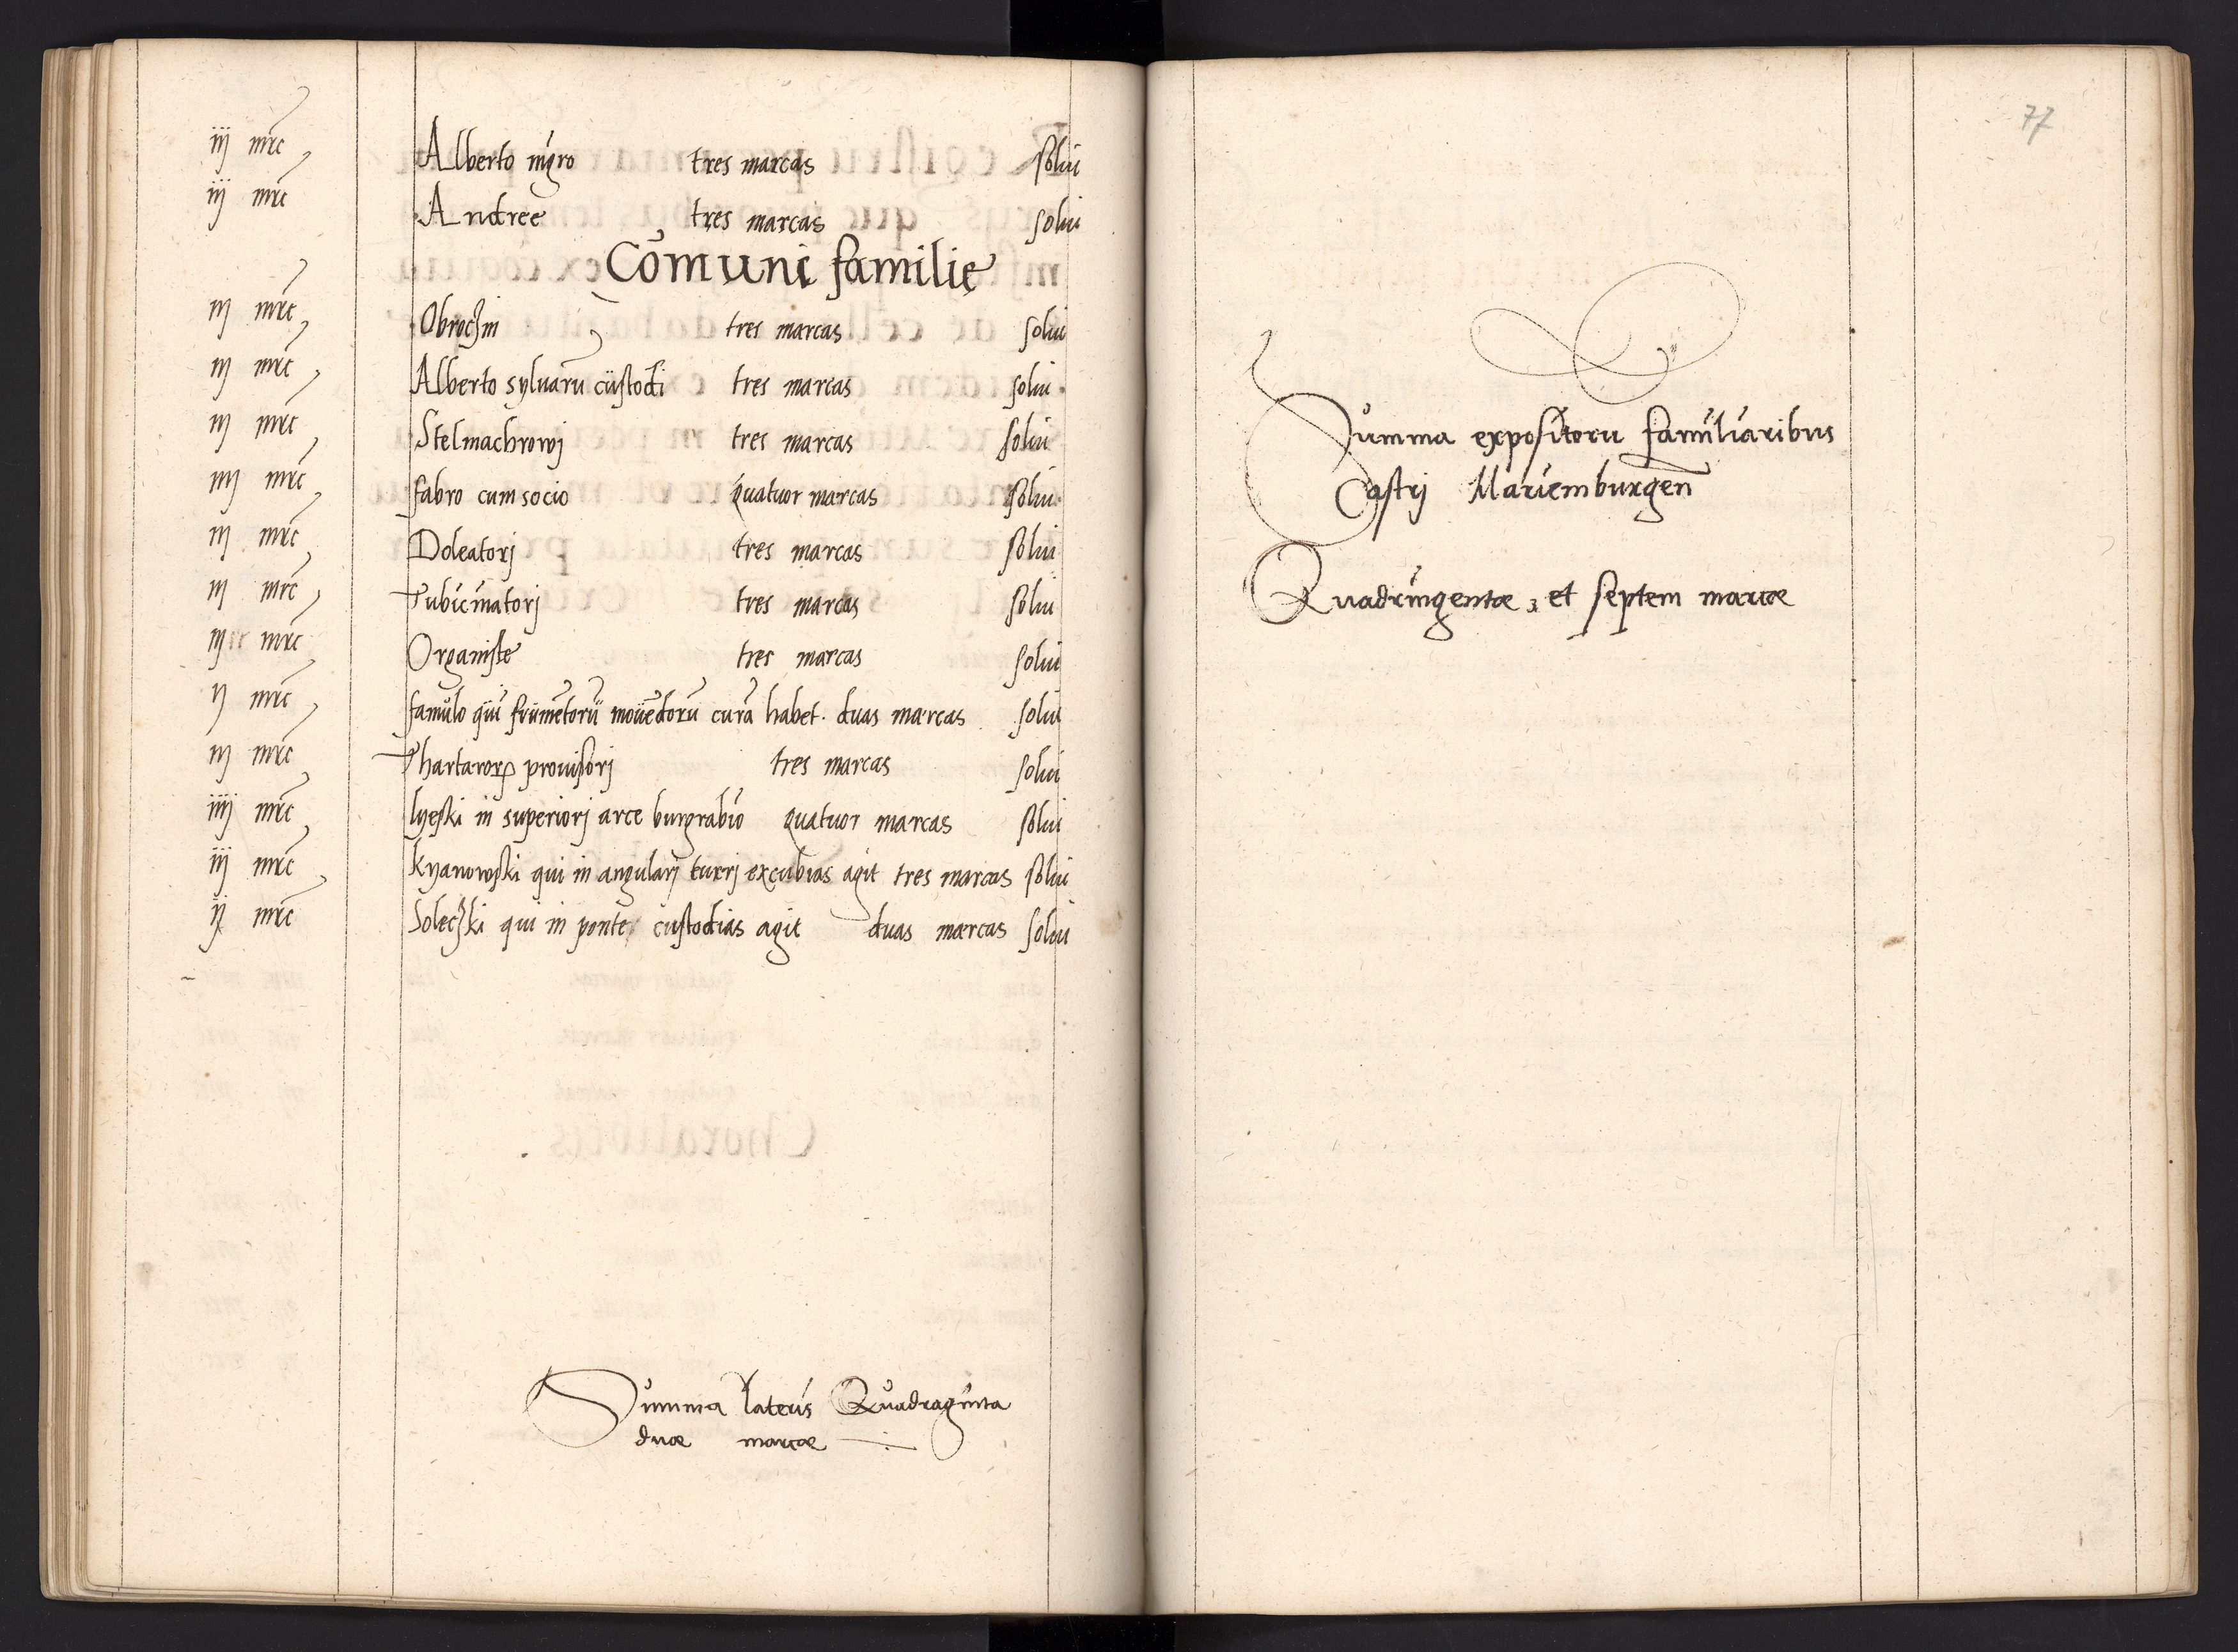 iij mrc Alberto nigro tres marcas solui
iij mrc Andree tres marcas solui
Cōmuni familię
iij mrc Obroczni tres marcas solui
iij mrc Alberto syluarū custodi tres marcas solui
iij mrc Stelmachrowj tres marcas solui
iiij mrc fabro cum socio quatuor marcas solui
iij mrc Doleatorj tres marcas solui
iij mrc Tubicinatorj tres marcas solui
iij mrc Organiste tres marcas solui
ij mrc famulo qui frumētorū mouēdorū curā habet. duas marcas solui
iij mrc Thartarorꝝ prouisorj tres marcas solui
iiij mrc lyeski in superiorj arce burgrabio quatuor marcas solui
iij mrc kyanowski qui in angularj turrj excubias agit tres marcas solui
ij mrc Soleczki qui in ponte custodias agit duas marcas solui
Summa lateris Quadraginta
duæ marcæ
77
Summa expositorū familiaribus
Castrj Mariemburgen̄
Quadringentæ, et septem marcæ